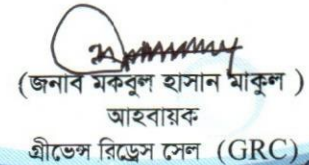 (জনাব মকবুল হাসান মাকুল )
আহবায়ক
গ্রীভেন্স রিড্রেস সেল (GRC)